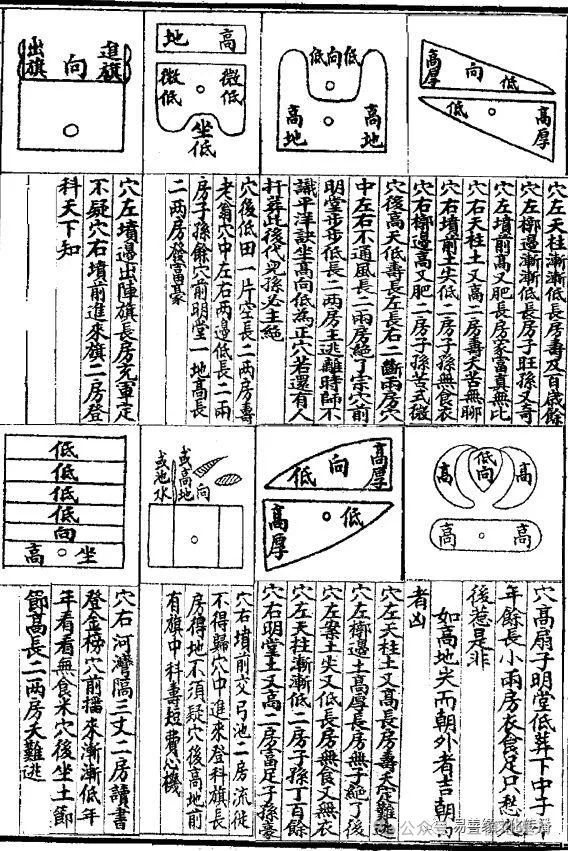 高厚 向 低
低 高厚
穴左天柱漸漸低長房壽及百歲餘
穴左墎邊漸漸低長房子旺孫又奇
穴左墳前高又肥長房家富真無比
穴右天柱土又高二房壽夭苦無聊
穴右墳前土尖低二房子孫無食衣
穴右墎邊高又肥二房子孫苦式微
低向低
高地 高地
穴後高天低壽長左長右二斷兩房穴
中左右不通風長二兩房絕了宗穴前
明堂步步低長二兩房主逃離時師不
識平洋訣坐高向低為正穴若還有人
扞葬此後代兒孫必主絕
高地
微低 微低
坐低
穴後低田一片空長二兩房壽
老翁穴中左右兩邊低長二兩
房子孫餘穴前明堂一地高長
二兩房發富豪
進旗 向 出旗
穴左墳邊出陣旗長房充軍定
不疑穴右墳前進來旗二房登
科天下知
高 低向 高
高 高
穴高扇子明堂低葬下中子
年餘長小兩房衣食足只愁
後惹是非
如高地尖而朝外者吉朝內
者凶
高厚 向 低
低 高厚
穴左天柱土又高長房壽夭定難逃
穴左墎邊土高厚長房無子絕了後
穴左案土尖又低長房無食又無衣
穴右天柱漸漸低二房子孫丁百餘
穴右明堂土又高二房富足子孫豪
向
或高地
或池水
穴右墳前交弓池二房流徙
不得歸穴中進來登科旗長
房得地不須疑穴後高地前
有旗中科壽短費心機
低
低
低
低
向
坐 高
穴右河灣隔三丈二房讀書
登金榜穴前擋來漸漸低年
年看看無食米穴後坐土節
節高長二兩房夭難逃
公众号